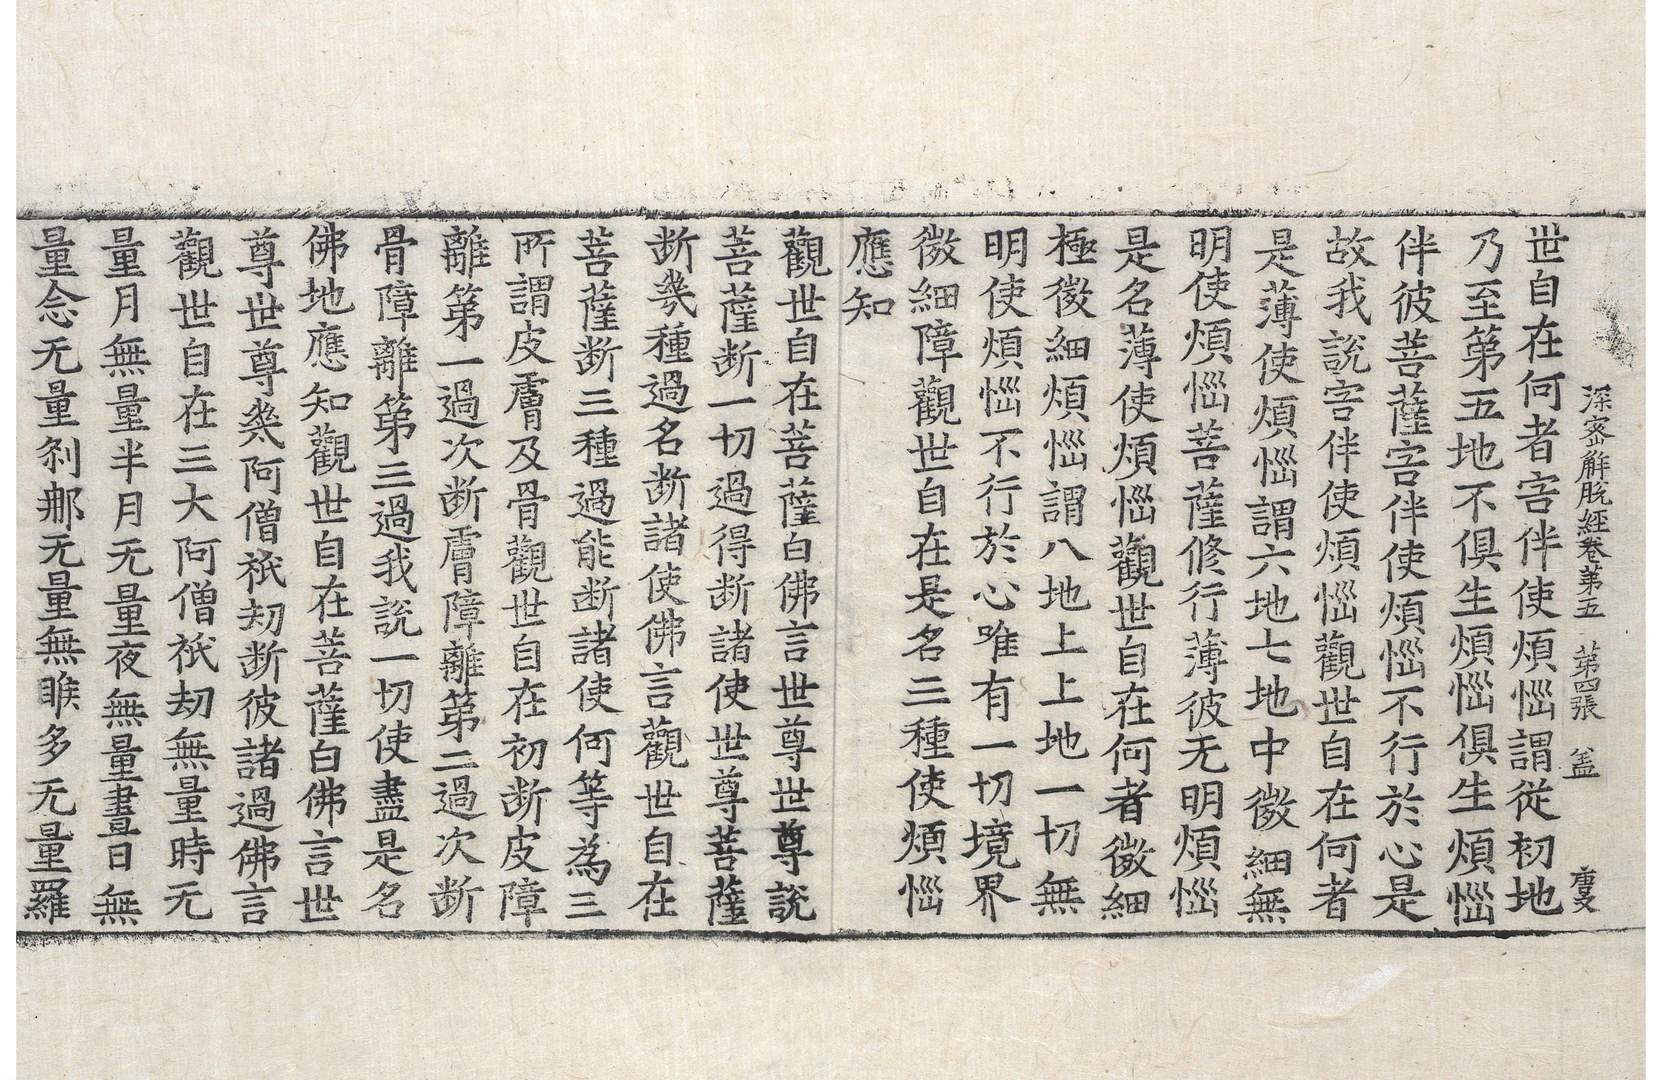 深密解脫經卷第五 第四張 盖
世自在何者害伴使煩惱謂從初地
乃至第五地不俱生煩惱俱生煩惱
伴彼菩薩害伴使煩惱不行於心是
故我說害伴使煩惱觀世自在何者
是薄使煩惱謂六地七地中微細無
明使煩惱菩薩修行薄彼无明煩惱
是名薄使煩惱觀世自在何者微細
極微細煩惱謂八地上上地一切無
明使煩惱不行於心唯有一切境界
微細障觀世自在是名三種使煩惱
應知
觀世自在菩薩白佛言世尊世尊說
菩薩断一切過得断諸使世尊菩薩
断幾種過名断諸使佛言觀世自在
菩薩断三種過能断諸使何等為三
所謂皮膚及骨觀世自在初断皮障
離第一過次断膚障離第二過次断
骨障離第三過我說一切使盡是名
佛地應知觀世自在菩薩白佛言世
尊世尊幾阿僧祇劫断彼諸過佛言
觀世自在三大阿僧祇劫無量時无
量月無量半月无量夜無量晝日無
量念无量剎那无量無睺多无量羅